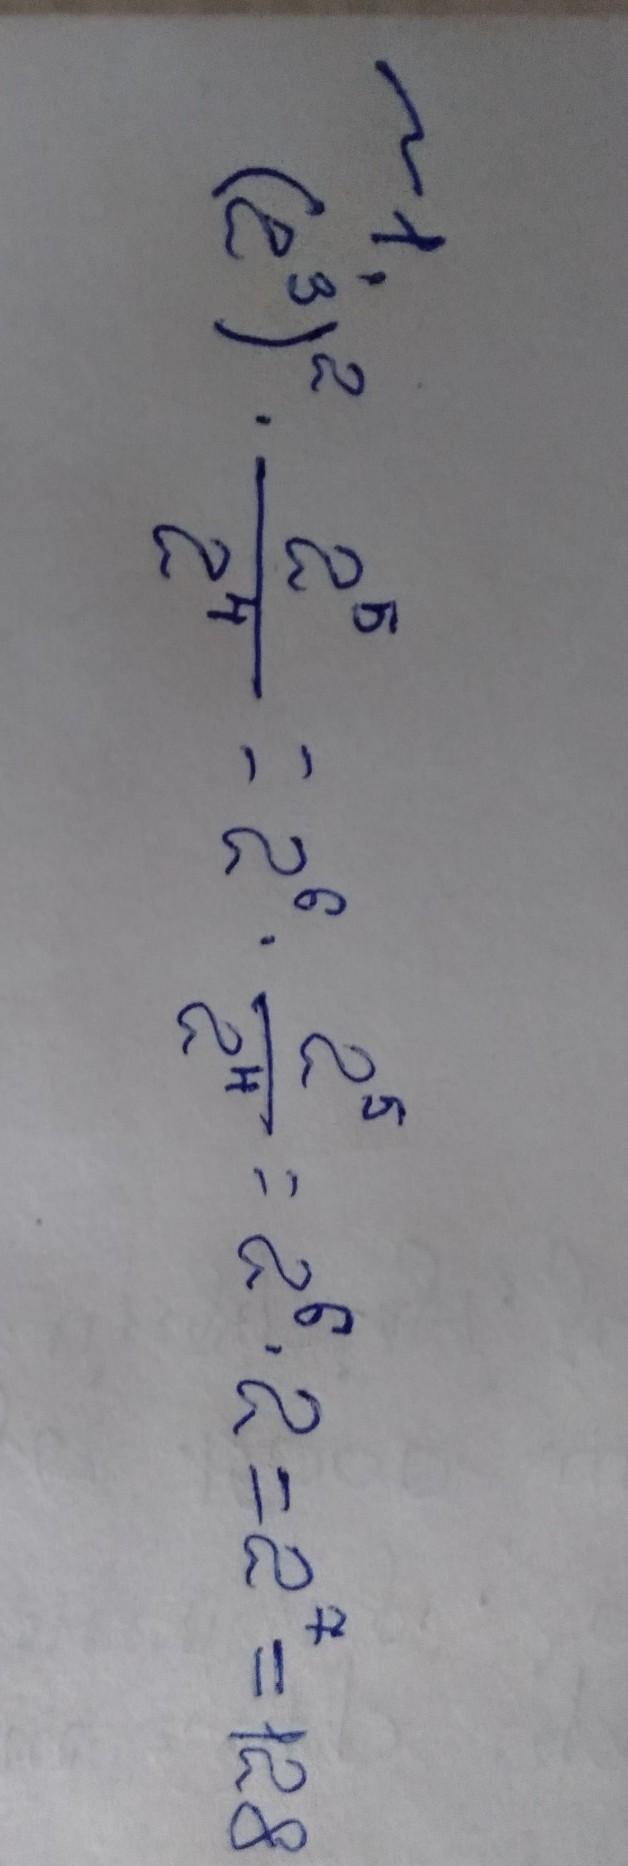 ~1.
(2³)² · 2⁵/2⁴ = 2⁶ · 2⁵/2⁴ = 2⁶ · 2 = 2⁷ = 128